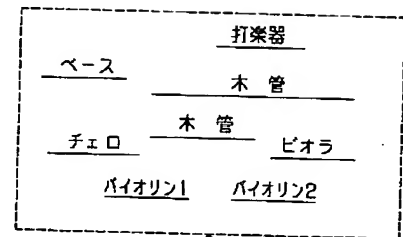 打楽器
ベース
木管
木管
チェロ
ビオラ
バイオリン1
バイオリン2